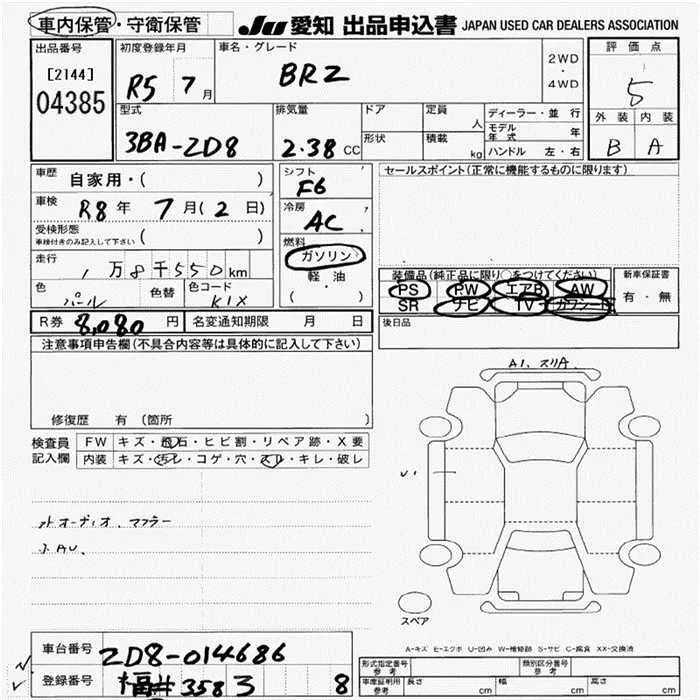 車内保管・守衛保管 JU 愛知 出品申込書 JAPAN USED CAR DEALERS ASSOCIATION
出品番号 初度登録年月 車名・グレード 2WD・4WD 評価点
[2144] 04385 R5 7月 BRZ 5
型式 排気量 ドア 定員 人 ディーラー・並行 外装 内装
3BA-ZD8 2.38CC 形状 積載 kg モデル年式 年 ハンドル 左・右 B A
車歴 自家用・( ) シフト F6 セールスポイント(正常に機能するものに限ります)
車検 R8年 7月(2日) 冷房 AC
受検形態 車検付きのみ記入して下さい ( ) 燃料 ガソリン
走行 1万8千550km 軽油
色 パール 色替 色コード K1X ( )
装備品(純正品に限り○をつけてください) 新車保証書
PS PW エアB AW 有・無
SR ナビ TV カワシート
R券 8,080円 名変通知期限 月 日 後日品
注意事項申告欄(不具合内容等は具体的に記入して下さい)
A1. スリA.
修復歴 有 (箇所
検査員記入欄 FW キズ・飛石・ヒビ割・リペア跡・X要
内装 キズ・汚レ・コゲ・穴・スレ・キレ・破レ
U1
外オーディオ、マフラー
スペア
車台番号 ZD8-014686
A-キズ E-エクボ U-凹み W-補修跡 S-サビ C-腐食 XX-交換済
登録番号 福井 358 3 8
形式指定番号 参考 類別区分番号 参考
車庫証明用 参考 長さ cm 幅 cm 高さ cm